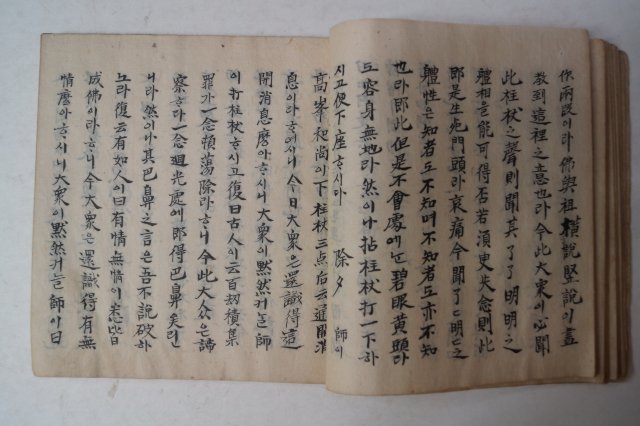 你兩段이라佛與祖橫說竪說이盡
敎到這裡之意也라今此大衆이必聞
此柱杖之聲則聞其了了明明之
軆相을能可得否若須臾失念則此
即是生死門頭라哀痛今聞了了明明之
軆性은知者도不知며不知者도亦不知
也라即此但是不會處에는碧眼黃頭라
도容身無地라然이나拈柱杖打一下하
시고便下座하시다 除夕 師이
高峯和尙이下柱杖三点后云進闍消
息이라하여시니今日大衆은還識得這
開消息麽아하시니大衆이黙然커늘師
이打柱杖하시고復曰古人이云百劫積集
罪가一念頓蕩除라하니今此大众은諦
察하라一念廻光處에即得巴鼻矣리
니라然이나其巴鼻之言은吾不說破하
노라復云有如人이曰有情無情이悉皆
成佛이라하니今大衆은還識得有無
情麽아하시니大衆이黙然커늘師이曰